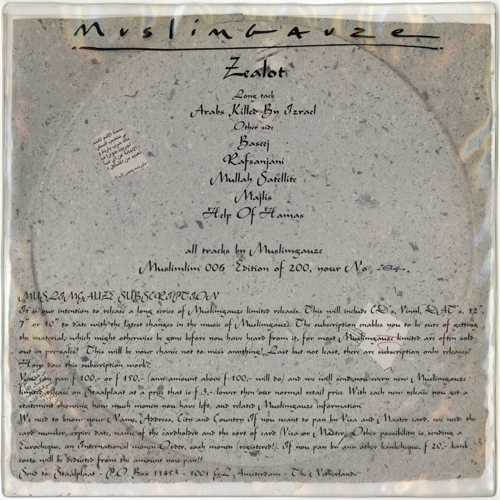 Muslimgauze
Zealot
Long tack
Arabs Killed By Izrael
Other side
Baseej
Rafsanjani
Mullah Satellite
Majlis
Help Of Hamas
all tracks by Muslimgauze
Muslimlim 006 Edition of 200, your No
MUSLIMGAUZE SUBSCRIPTION
It is our intention to release a long series of Muslimgauze limited releases. This will include CD's, Vinyl, DAT's, 12",
7" or 10" to date with the latest changes in the music of Muslimgauze. The subscription enables you to be sure of getting
the material, which might otherwise be gone before you have heard from it, for most Muslimgauze limited are often sold
out in presales! This will be your chance not to miss anything! Last but not least, there are subscription only releases!
How does this subscription work?
You can pay f 100,- or f 150,- (any amount above f 100,- will do) and we will send you every new Muslimgauze
limited release on Staalplaat at a price that is f 3,- lower then our normal retail price. With each new release you get a
statement showing how much money you have left, and related Muslimgauze information
We need to know your Name, Address, City and Country. If you want to pay by Visa and Master card, we need the
card number, expire date, name of the cardholder and the sort of card (Visa or Master). Other possibility is sending a
Eurocheque, an International money Order, cash money (registered!). If you pay by any other bankcheque, f 20,- bank
costs will be deducted from the amount you pay!!
Send to: Staalplaat - P.O. Box 11453 - 1001 GL Amsterdam - The Netherlands